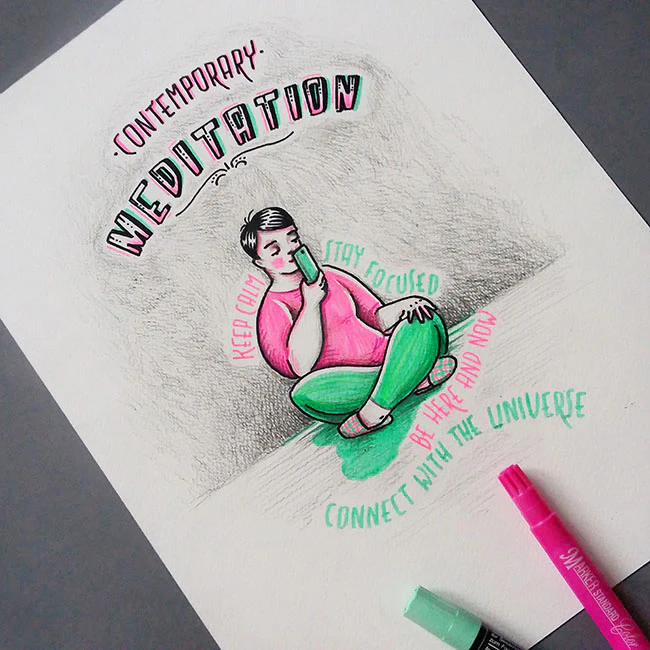 ·CONTEMPORARY·
MEDITATION
KEEP CALM
STAY FOCUSED
BE HERE AND NOW
CONNECT WITH THE UNIVERSE
MARKER STANDARD Color